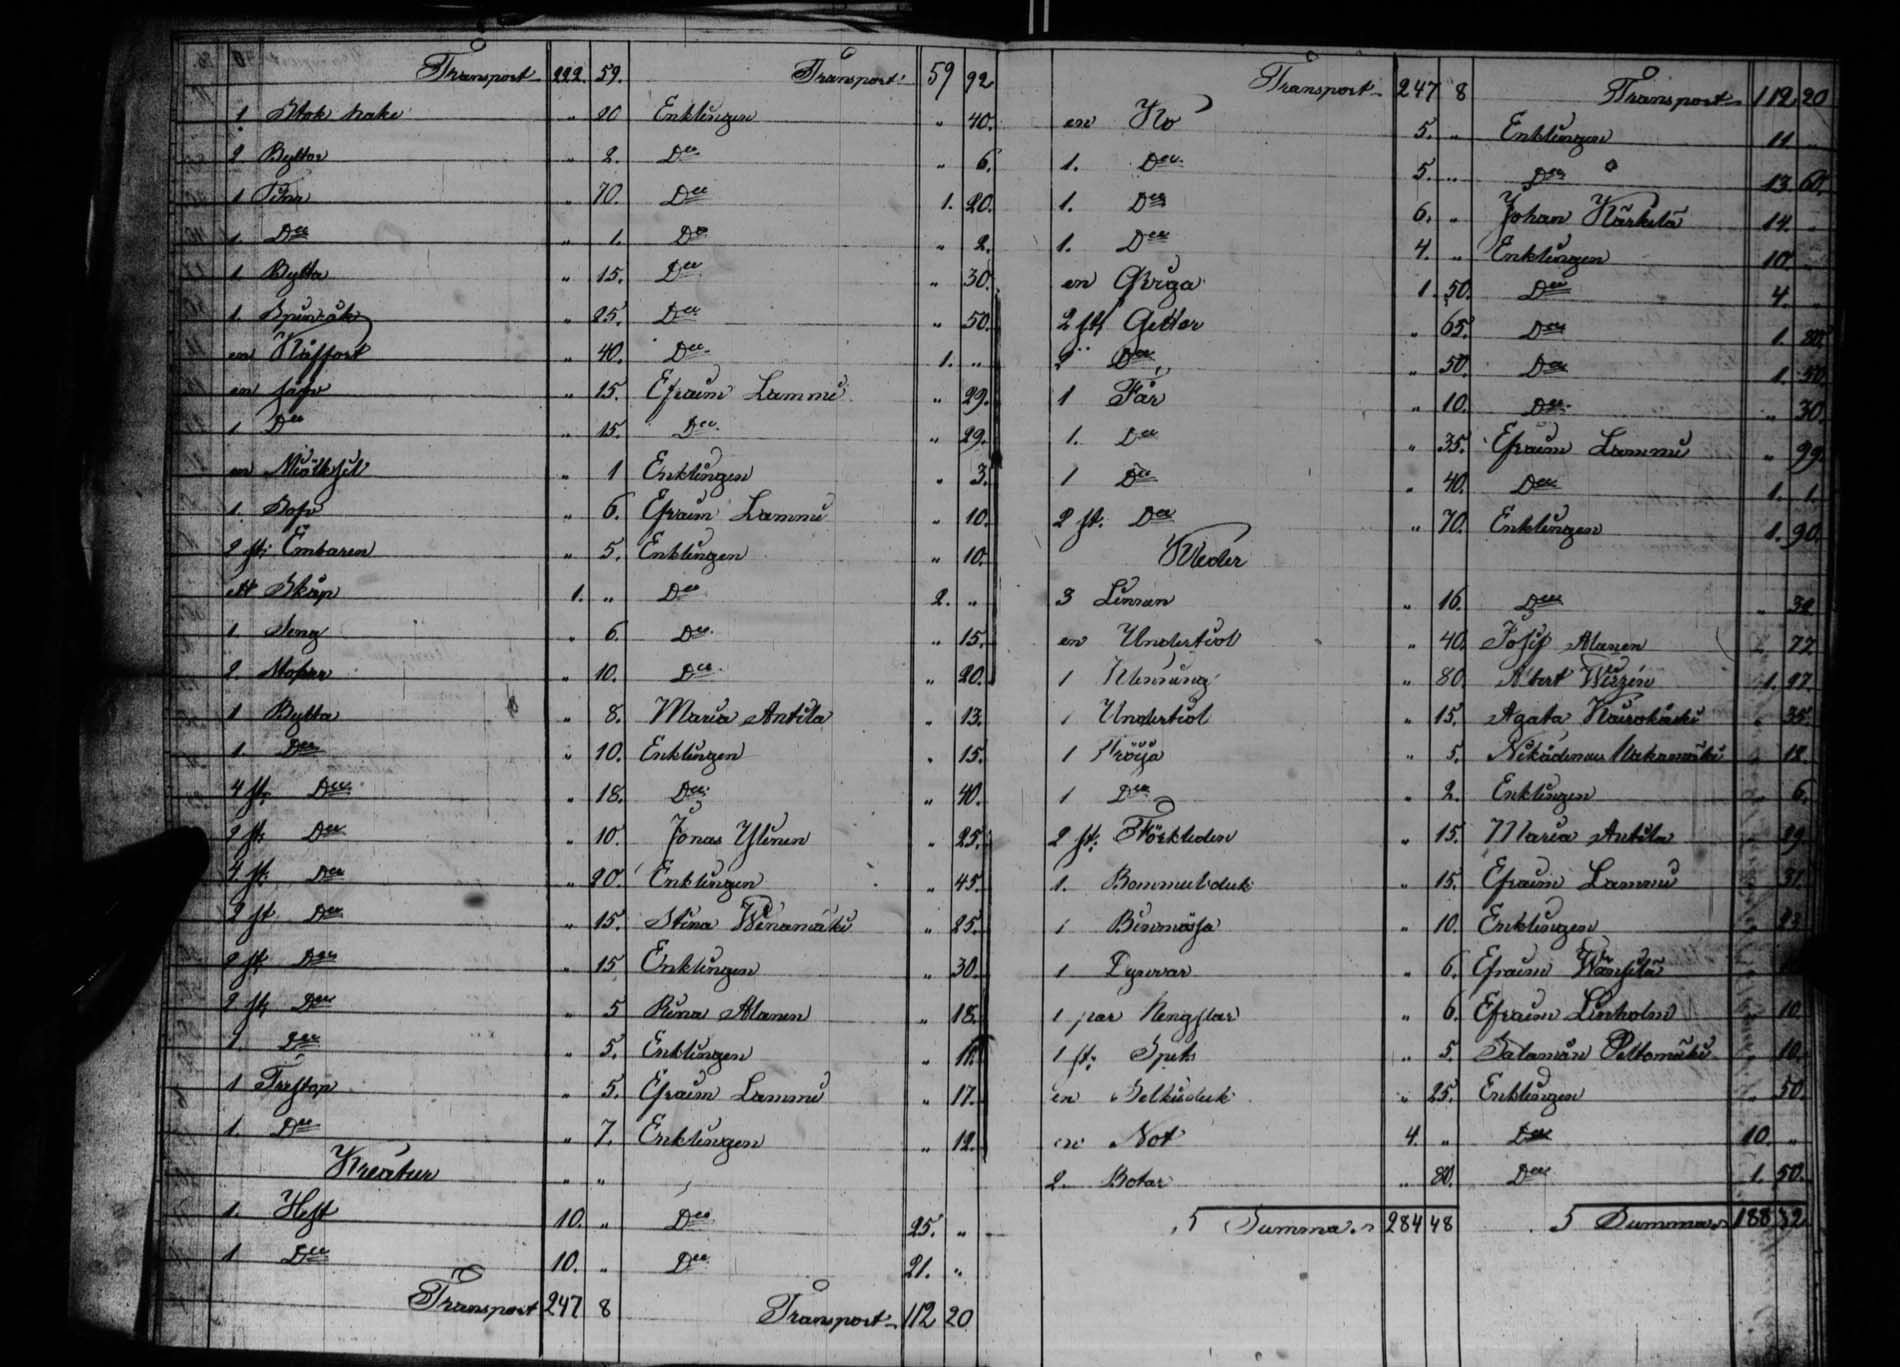 Transport 222. 59. Transport 59 92
1 Stok hake " 20 Enklingen " 40.
2 Byttor " 2. Do " 6.
1 Tina " 70. Do 1. 20.
1. Do " 1. Do " 2.
1 Bytta " 15. Do " 30.
1. " 25. Do " 50.
en Kåffort " 40. Do 1. "
en " 15. Efraim Lammi " 29.
1 Do " 15. Do " 29.
en " 1 Enklingen " 3.
1. " 6. Efraim Lammi " 10.
2 st: Embaren " 5. Enklingen " 10.
ett Skåp 1. " Do 2. "
1. Seng " 6. Do " 15.
2. " 10. Do " 20.
1 Bytta " 8. Maria Antila " 13.
1. Do " 10. Enklingen " 15.
4 st. Do " 18. Do " 40.
2 st. Do " 10. Jonas Ylinen " 25.
4 st. Do " 20. Enklingen " 45.
2 st Do " 15. Stina Winamäki " 25.
2 st. Do " 15 Enklingen " 30.
2 st. Do " 5 Alanen " 18.
1. Do " 5. Enklingen
1 " 5. Efraim Lammi " 17.
1. Do " 7. Enklingen " 12.
Kreatur " "
1. Hest 10. " Do 25. "
1 Do 10. " Do 21. "
Transport 247 8 Transport 112 20
Transport 247 8 Transport 112 20
en Ko 5. " Enklingen 11 "
1. Do 5. " Do 13 60.
1. Do 6. " Johan Kärkelä 14. "
1. Do 4. " Enklingen 10. "
en Qviga 1 50. Do 4. "
2 st. Getter " 65. Do 1. 80.
2 Do " 50. Do 1. 50.
1 Får " 10. Do " 30.
1. Do " 35. Efraim Lammi " 99.
1 Do " 40. Do 1. 1.
2 st. Do " 70. Enklingen 1. 90.
Kleder
3 Linnan " 16. Do " 32
en Undertiol " 40. Josip Alanen 77
1 Klenning " 80. 1. 27.
1 Undertiol " 15. Agata " 35.
1 Tröija " 5. 12.
1 Do " 2. Enklingen " 6.
2 st. Förkleden " 15. Maria Antila 29
1. Bommulsduk " 15. Efraim Lammi 31.
1 Binmössa " 10. Enklingen 23
1 " 6. Efraim
1 par " 6. Efraim Linholm 10.
1 st: " 5. Salamån Peltomäki 10.
en Selkisduk " 25. Enklingen " 50.
en Not 4. " Do 10. "
2. Botar " 80. Do 1. 50.
Summa 284 48 Summa 188 32